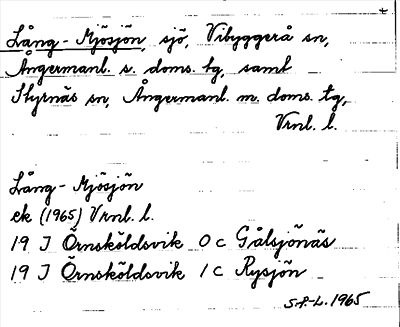 Lång-Mjösjön, sjö, Vibyggerå sn,
Ångermanl. s. doms. tg, samt
Styrnäs sn, Ångermanl. m. doms. tg,
Vrnl. l.
Lång-Mjösjön
ek (1965) Vrnl. l.
19 J Örnsköldsvik 0 c Gålsjönäs
19 J Örnsköldsvik 1 c Rysjön
S.P.-L. 1965